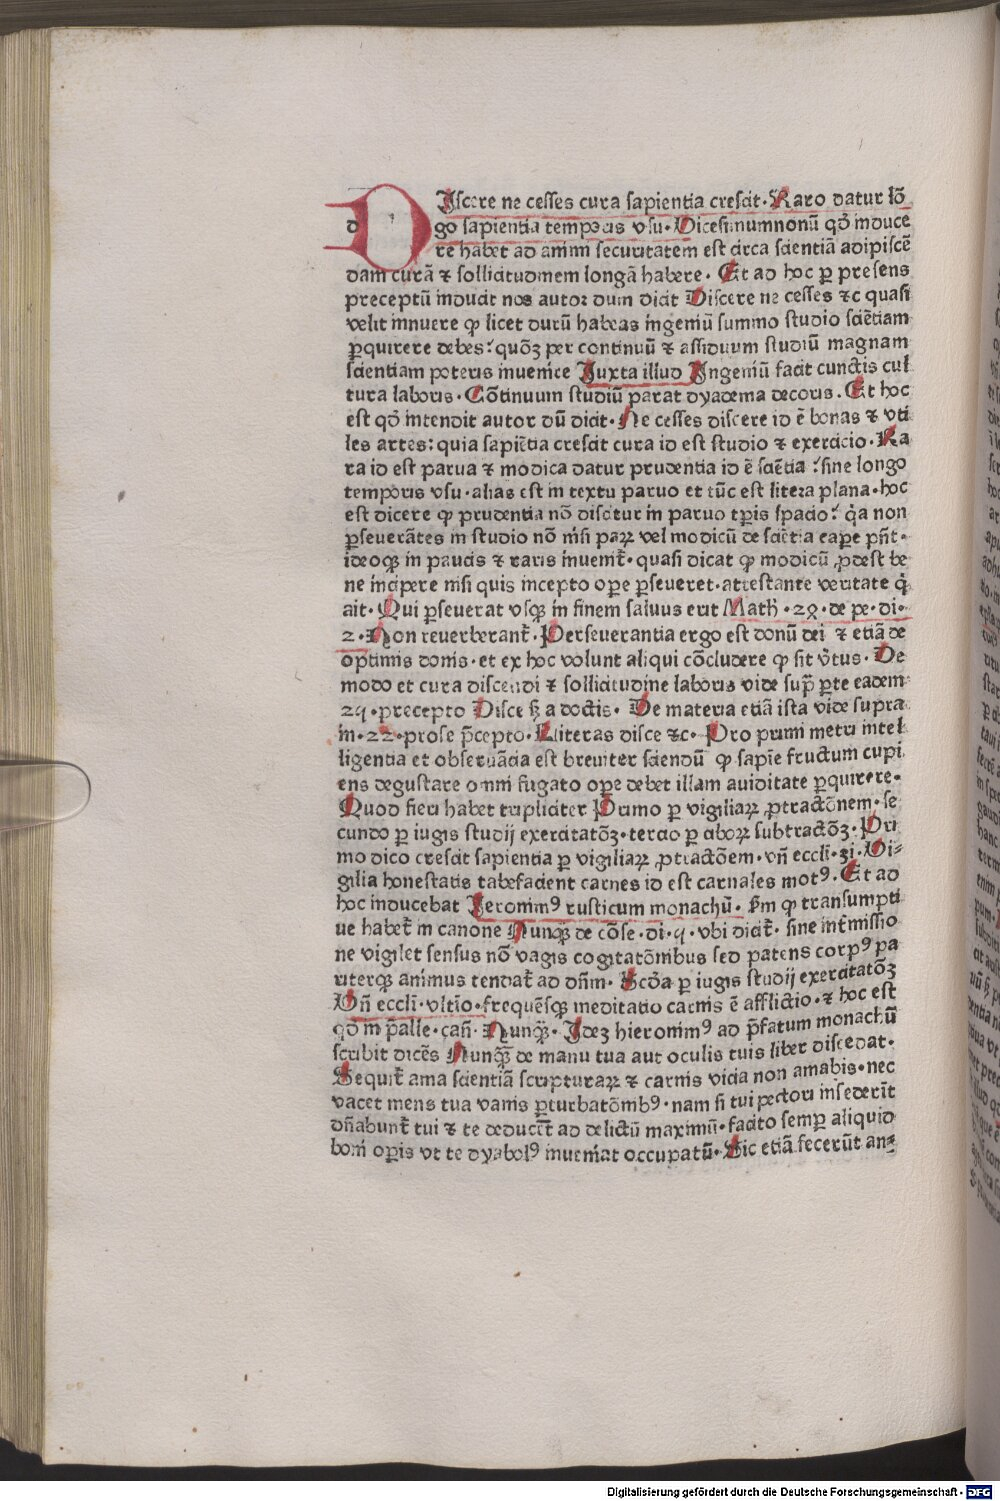 DIscere ne cesses cura sapientia crescit. Raro datur lō
go sapientia temporis vsu. Uicesimumnonū qd̄ induce
re habet ad animi securitatem est circa scientiā adipiscē
dam curā ⁊ sollicitudinem longā habere. Et ad hoc ꝑ presens
preceptū inducit nos autor dum dicit Discere ne cesses ⁊c quasi
velit innuere ꝙ licet durū habeas ingeniū summo studio sciētiam
ꝑquirere debes: quōꝫ per continuū ⁊ assiduum studiū magnam
scientiam poteris inuenire Juxta illud Ingeniū facit cunctis cul
tura laboris. Cōtinuum studiū parat dyadema decoris. Et hoc
est qd̄ intendit autor dū dicit. Ne cesses discere id ē bonas ⁊ vti
les artes: quia sapiētia crescit cura id est studio ⁊ exercicio. Ra
ra id est parua ⁊ modica datur prudentia id ē sciētia: sine longo
temporis vsu. alias est in textu paruo et tūc est litera plana. hoc
est dicere ꝙ prudentia nō discitur in paruo tꝑis spacio: q̇a non
ꝑseuerātes in studio nō nisi paꝝ vel modicū de sciētia caꝑe pn̄t.
ideoqꝫ in paucis ⁊ raris inuenit᷑. quasi dicat ꝙ modicū ꝓdest be
ne incipere nisi quis incepto oꝑe ꝑseueret. attestante veritate q̇
ait. Qui ꝑseuerat vsqꝫ in finem saluus erit Math̄. 28. de pe. di.
2. Non reuerberant᷑. Perseuerantia ergo est donū dei ⁊ etiā de
optimis donis. et ex hoc volunt aliqui cōcludere ꝙ sit v̇tus. De
modo et cura discendi ⁊ sollicitudine laboris vide sup̄ ꝑte eadem
24. precepto Disce sꝫ a doctis. De materia etiā ista vide supra
in. 22. prose p̄cepto. Literas disce ⁊c. Pro primi metri intel
ligentia et obseruācia est breuiter sciendū ꝙ sapiē fructum cupi
ens degustare omni fugato oꝑe debet illam auiditate ꝑquirere.
Quod fieri habet tripliciter Primo ꝑ vigiliaꝝ ꝓtractōnem. se
cundo ꝑ iugis studij exercitatōꝫ. tercio ꝑ ciboꝝ subtractōꝫ. Pri
mo dico crescit sapientia ꝑ vigiliaꝝ ꝓtractōem. vn̄ eccli. 31. Ui⸗
gilia honestatis tabefacient carnes id est carnales motꝰ. Et ad
hoc inducebat Jeronimꝰ rusticum monachū. Fm ꝙ transumpti
ue habet᷑ in canone Nunqꝫ de cōse. di. 5. vbi dicit᷑. sine int᷑missio
ne vigilet sensus nō vagis cogitatōnibus sed patens corpꝰ pa
riterqꝫ animus tendat᷑ ad dn̄m. Scd̄a ꝑ iugis studij exercitatōꝫ
Un̄ eccli. vltīo. frequēsqꝫ meditatio carnis ē afflictio. ⁊ hoc est
qd̄ in p̄alle. can̄. Nunqꝫ. Ideꝫ hieronimꝰ ad p̄fatum monachū
scribit dicēs Nunqꝫ de manu tua aut oculis tuis liber discedat.
Sequit᷑ ama scientiā scripturaꝝ ⁊ carnis vicia non amabis. nec
vacet mens tua varijs ꝑturbatōnibꝰ. nam si tui pectori insederīt
dn̄abunt᷑ tui ⁊ te deducēt ad delictū maximū. facito semꝑ aliquid
boni oꝑis vt te dyabolꝰ inueniat occupatū. Sic etiā fecerūt an⸗
Digitalisierung gefördert durch die Deutsche Forschungsgemeinschaft - DFG